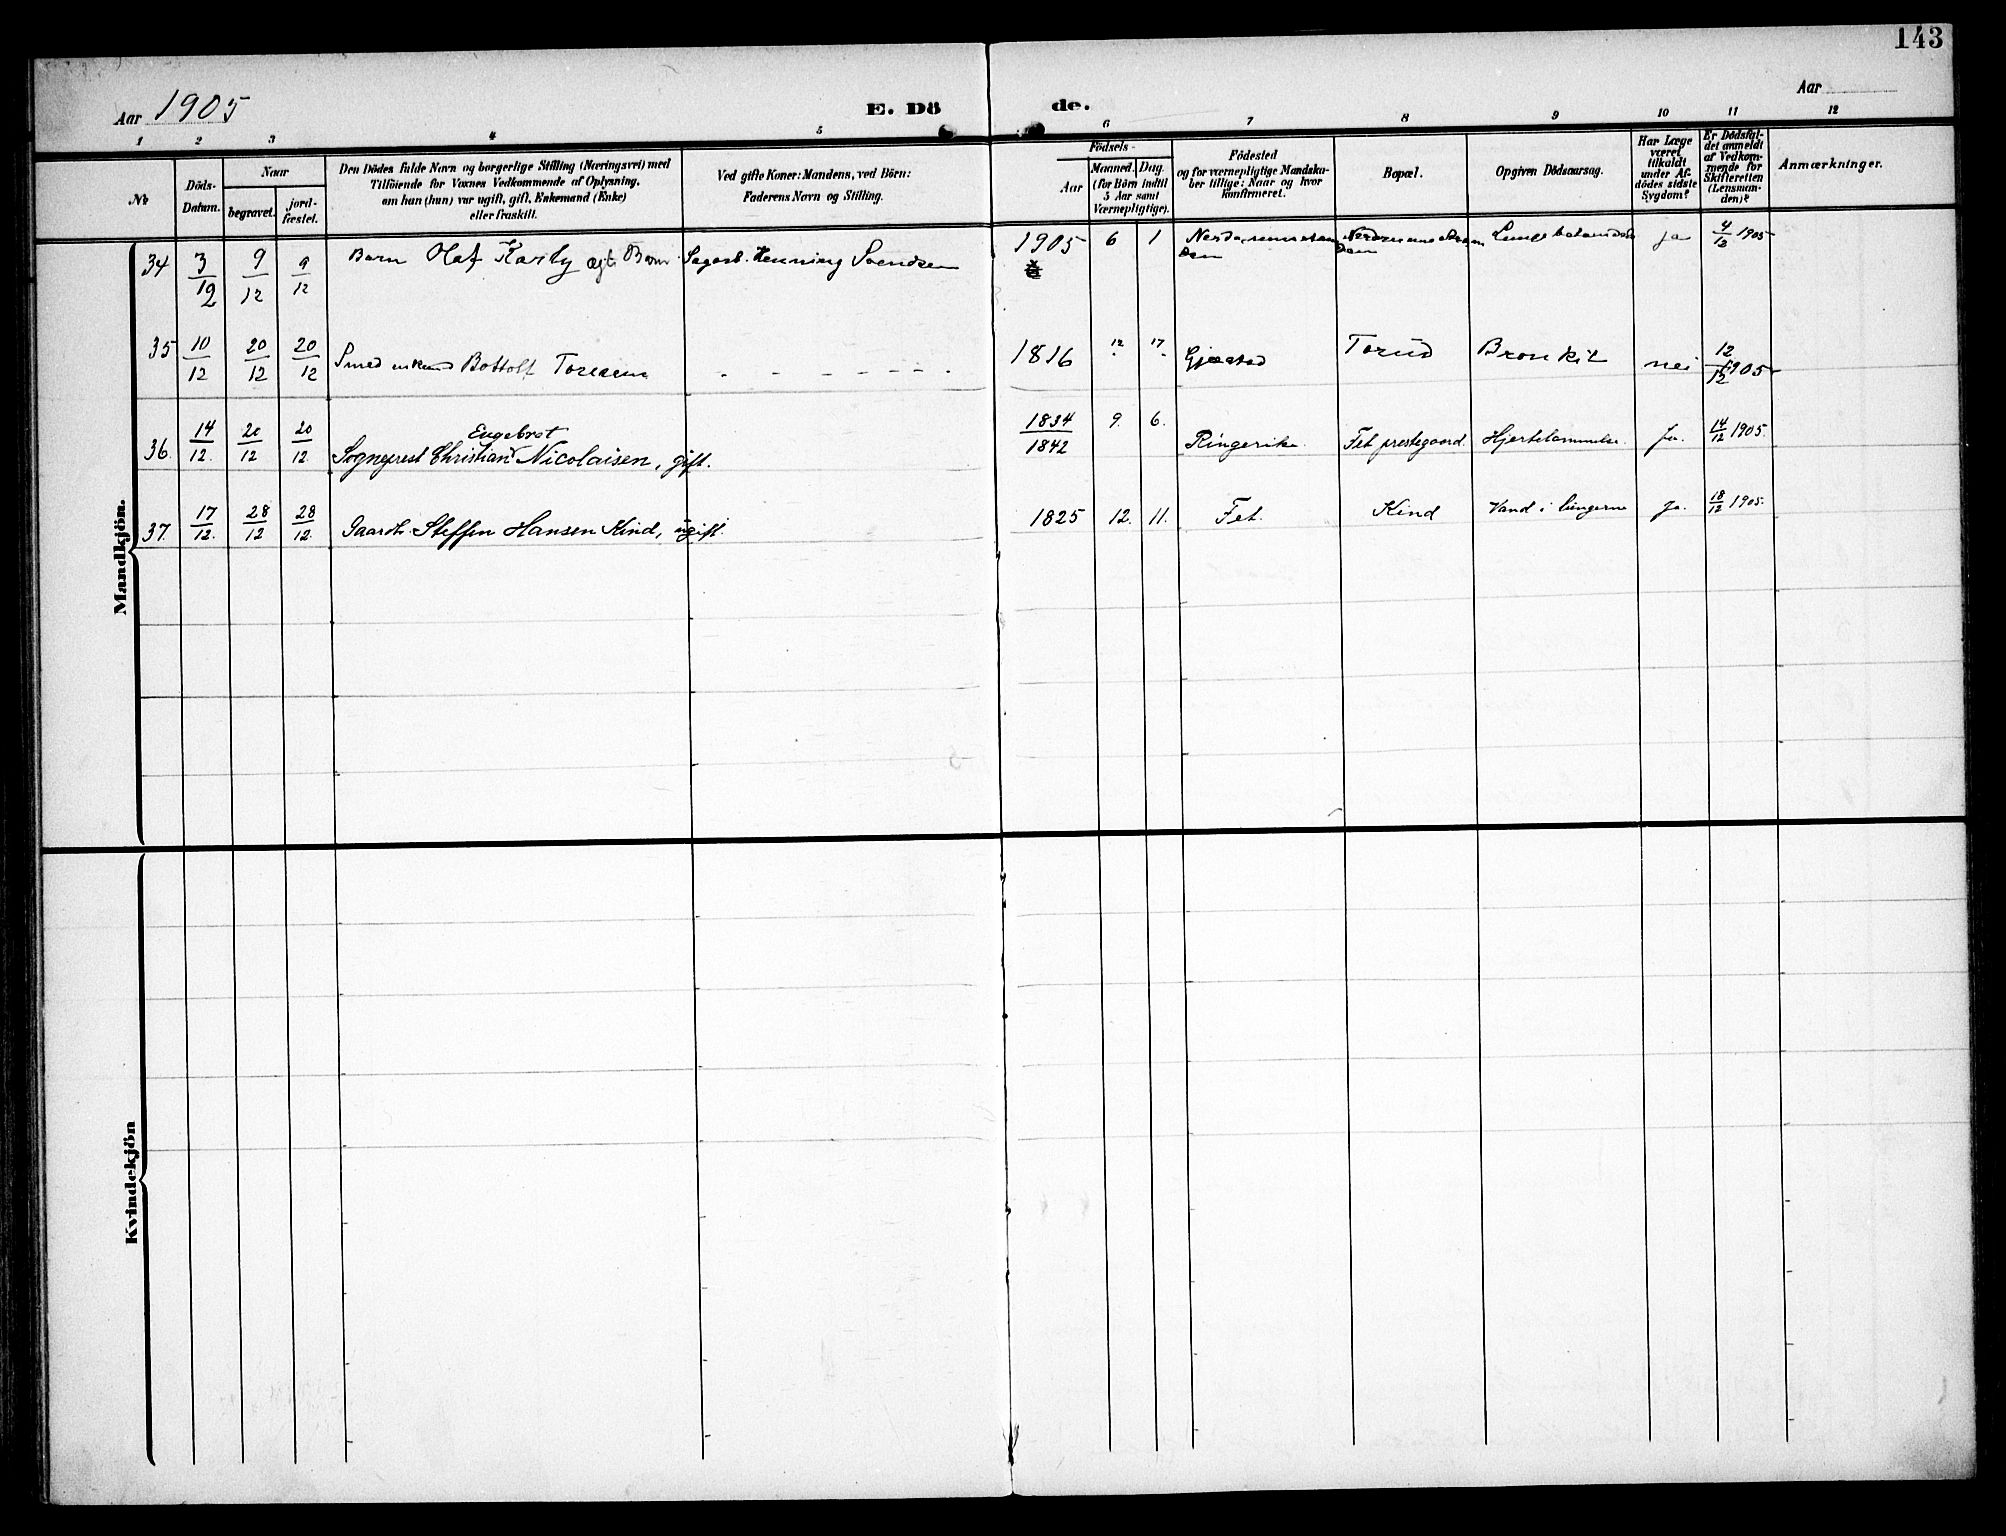 143
Aar 1905
E. Dö de.
Aar
1 2 3 4 5 6 7 8 9 10 11 12
No
Döds-
Datum.
Naar
begravet.
jord-
fæstet.
Den Dödes fulde Navn og borgerlige Stilling (Næringsvei) med
Tilföiende for Voxnes Vedkommende af Oplysning,
om han (hun) var ugift, gift, Enkemand (Enke)
eller fraskilt.
Ved gifte Koner: Mandens, ved Börn:
Faderens Navn og Stilling.
Födsels-
Aar
Maaned. Dag.
(for Börn indtil
5 Aar samt
Værnepligtige).
Födested
og for værnepligtige Mandska-
ber tillige: Naar og hvor
konfirmeret.
Bopæl.
Opgiven Dödsaarsag.
Har Læge
været
tilkaldt
under Af-
dödes sidste
Sygdom?
Er Dödsfal-
det anmeldt
af Vedkom-
mende for
Skifteretten
(Lensman-
den)?
Anmærkninger.
Mandkjön.
34 3/12 9/12 9/12 Barn Olaf Karby ægt. Barn Sagarb. Henning Svendsen 1905 6 1 ja 4/12 1905
35 10/12 20/12 20/12 Smed enkem Bottolf Toresen - - - - - - - 1816 12 17 Gjerstad Torud Bronkit nei 12/12 1905
Engebret
36. 14/12. 20/12 20/12 Sogneprest Christian Nicolaisen, gift. 1834/1842 9. 6. Ringerike. Fet prestegaard. Hjertelammelse. Ja. 14/12 1905.
37. 17/12. 28/12 28/12. Gaardb. Steffen Hansen Kind, ugift. 1825 12. 11. Fet. Kind Vand i lungerne Ja. 18/12 1905.
Kvindekjön